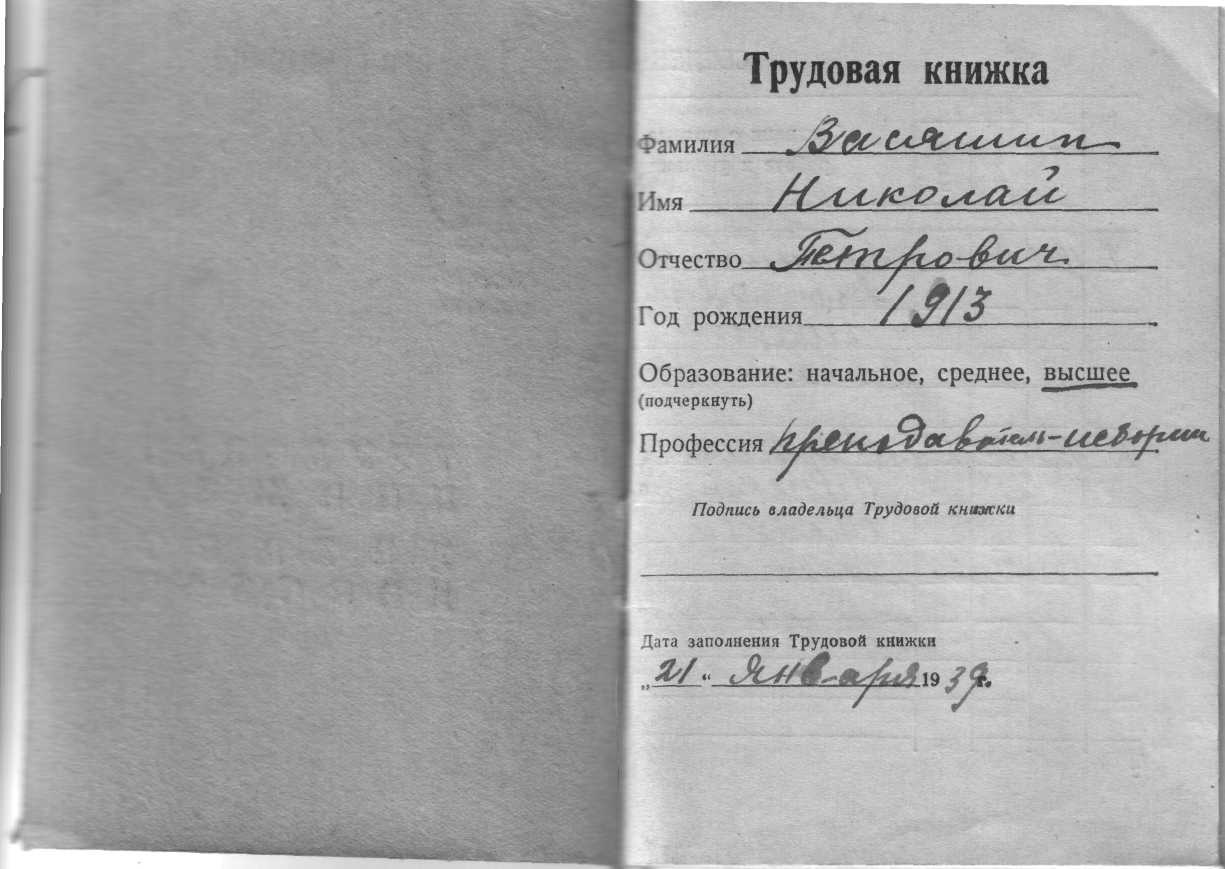 Трудовая книжка
Фамилия Васяшин
Имя Николай
Отчество Петрович
Год рождения 1913
Образование: начальное, среднее, высшее
(подчеркнуть)
Профессия преподаватель-истории
Подпись владельца Трудовой книжки
Дата заполнения Трудовой книжки
„21“ января 1939 г.